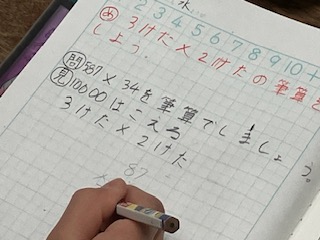 水
2 3 4 5 6 7 8 9 10 +
め 3けた×2けたの筆算を
しよう。
問 587×34を筆算でしましょう。
見 10000はこえる
3けた×2けた
87
×